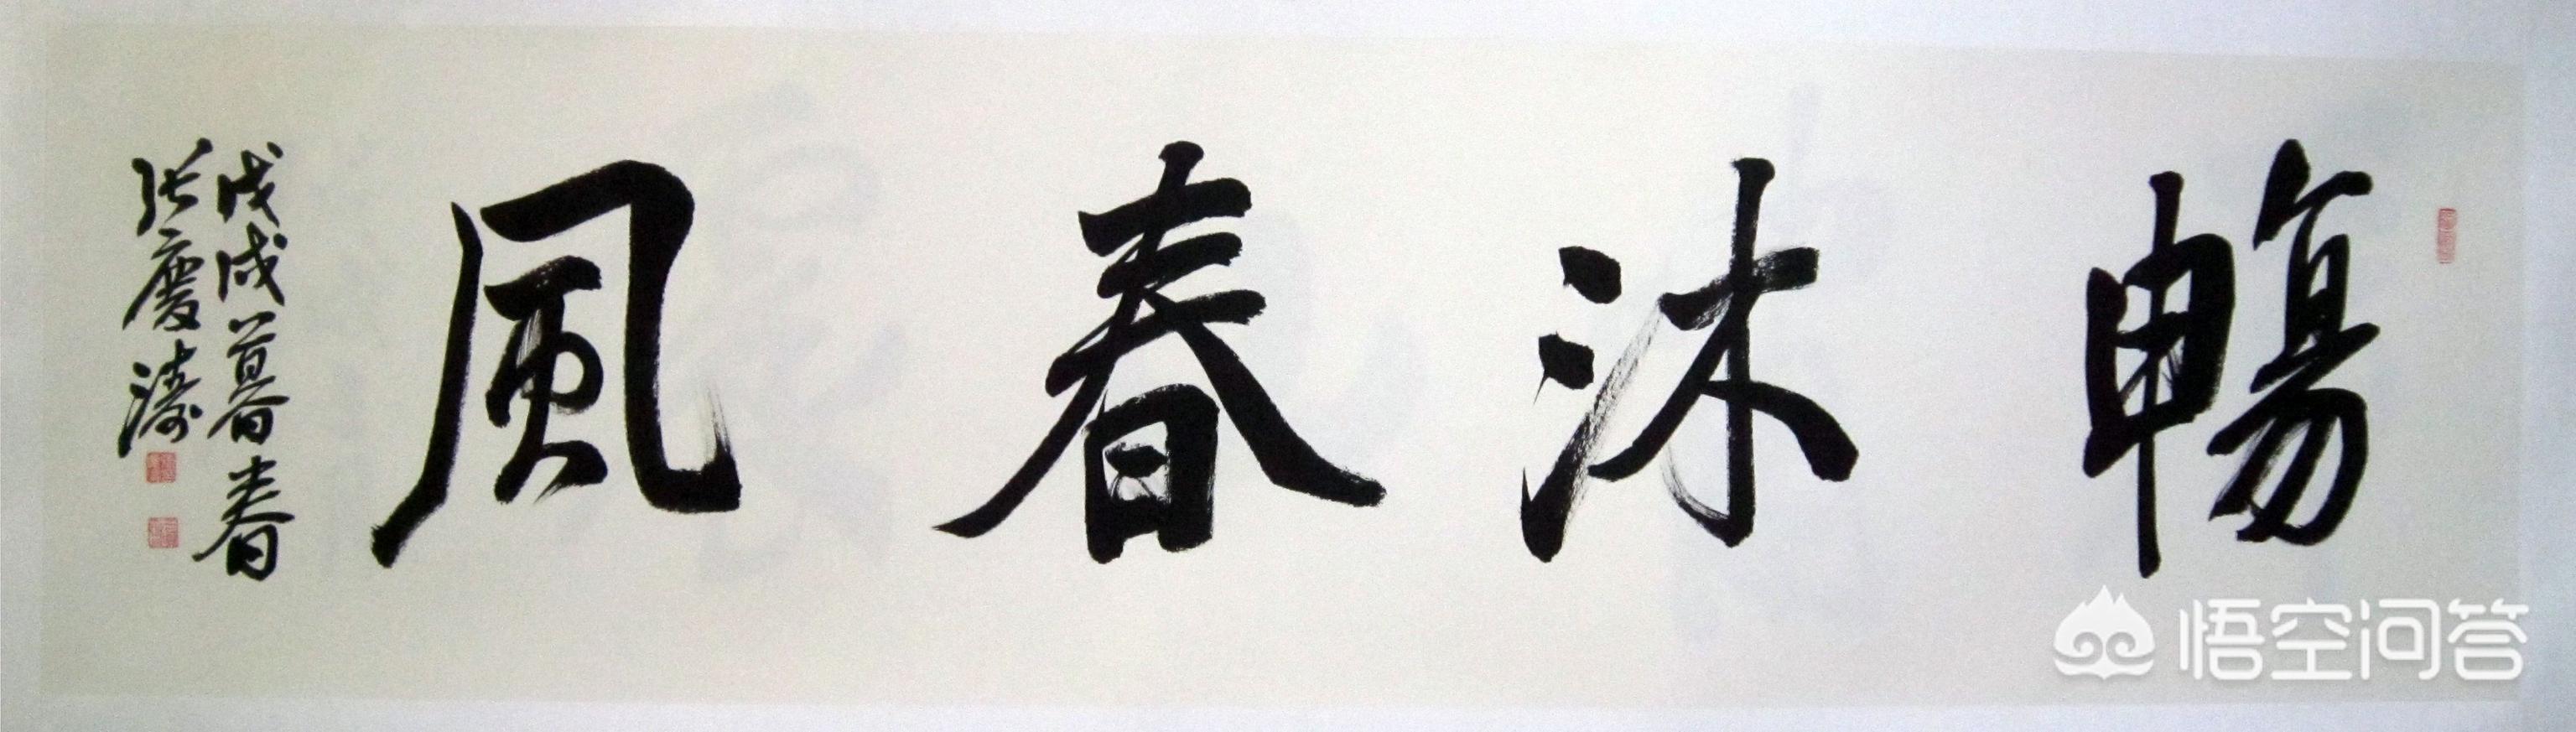 暢沐春風
戊戌暮春
張慶濤
悟空问答